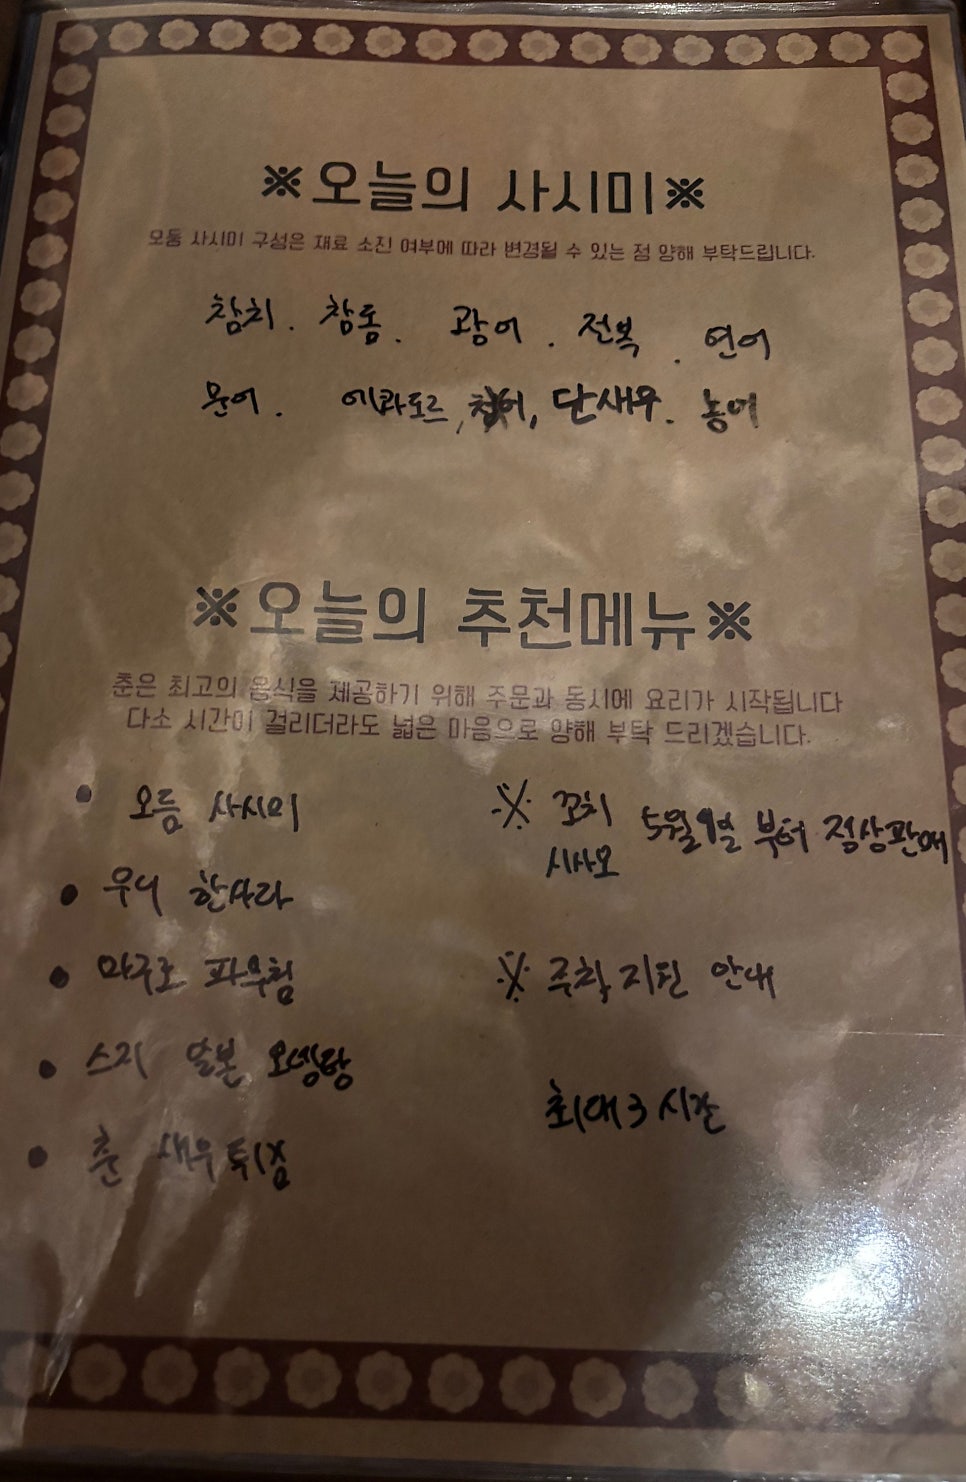 ※오늘의 사시미※
모둠 사시미 구성은 재료 소진 여부에 따라 변경될 수 있는 점 양해 부탁드립니다.
참치. 참돔. 광어. 전복. 연어
문어. 에콰도르, 단새우. 농어
※오늘의 추천메뉴※
춘은 최고의 음식을 제공하기 위해 주문과 동시에 요리가 시작됩니다
다소 시간이 걸리더라도 넓은 마음으로 양해 부탁 드리겠습니다.
• 모듬 사시미
• 우니 한사라
• 마구로 파무침
• 스지 알본 오뎅탕
• 춘 새우튀김
※ 꼬치 5월9일 부터 정상판매
시사모
※ 주차지원 안내
최대 3시간